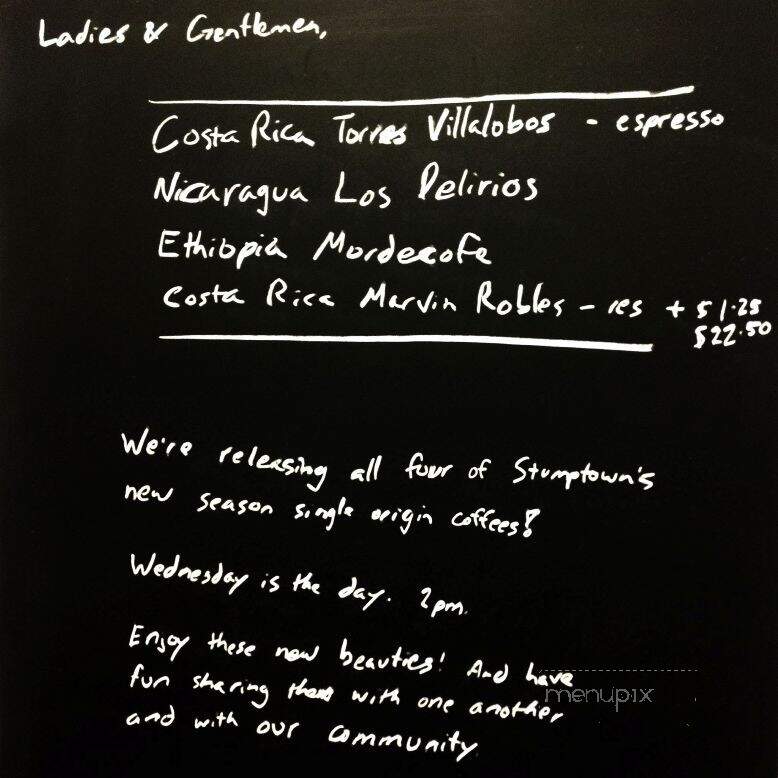 Ladies & Gentlemen,
Costa Rica Torres Villalobos - espresso
Nicaragua Los Delirios
Ethiopia Mordecofe
Costa Rica Marvin Robles - res + $1.25
$22.50
We're releasing all four of Stumptown's
new season single origin coffees!
Wednesday is the day. 2pm.
Enjoy these new beauties! And have
fun sharing them with one another
and with our community.
menupix